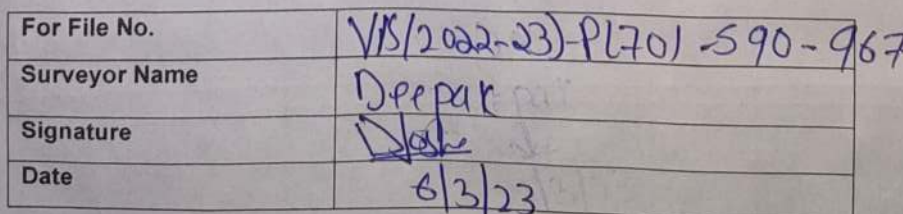 For File No. VIS/2022-23)-PL701-590-967
Surveyor Name Deepak
Signature
Date 6/3/23